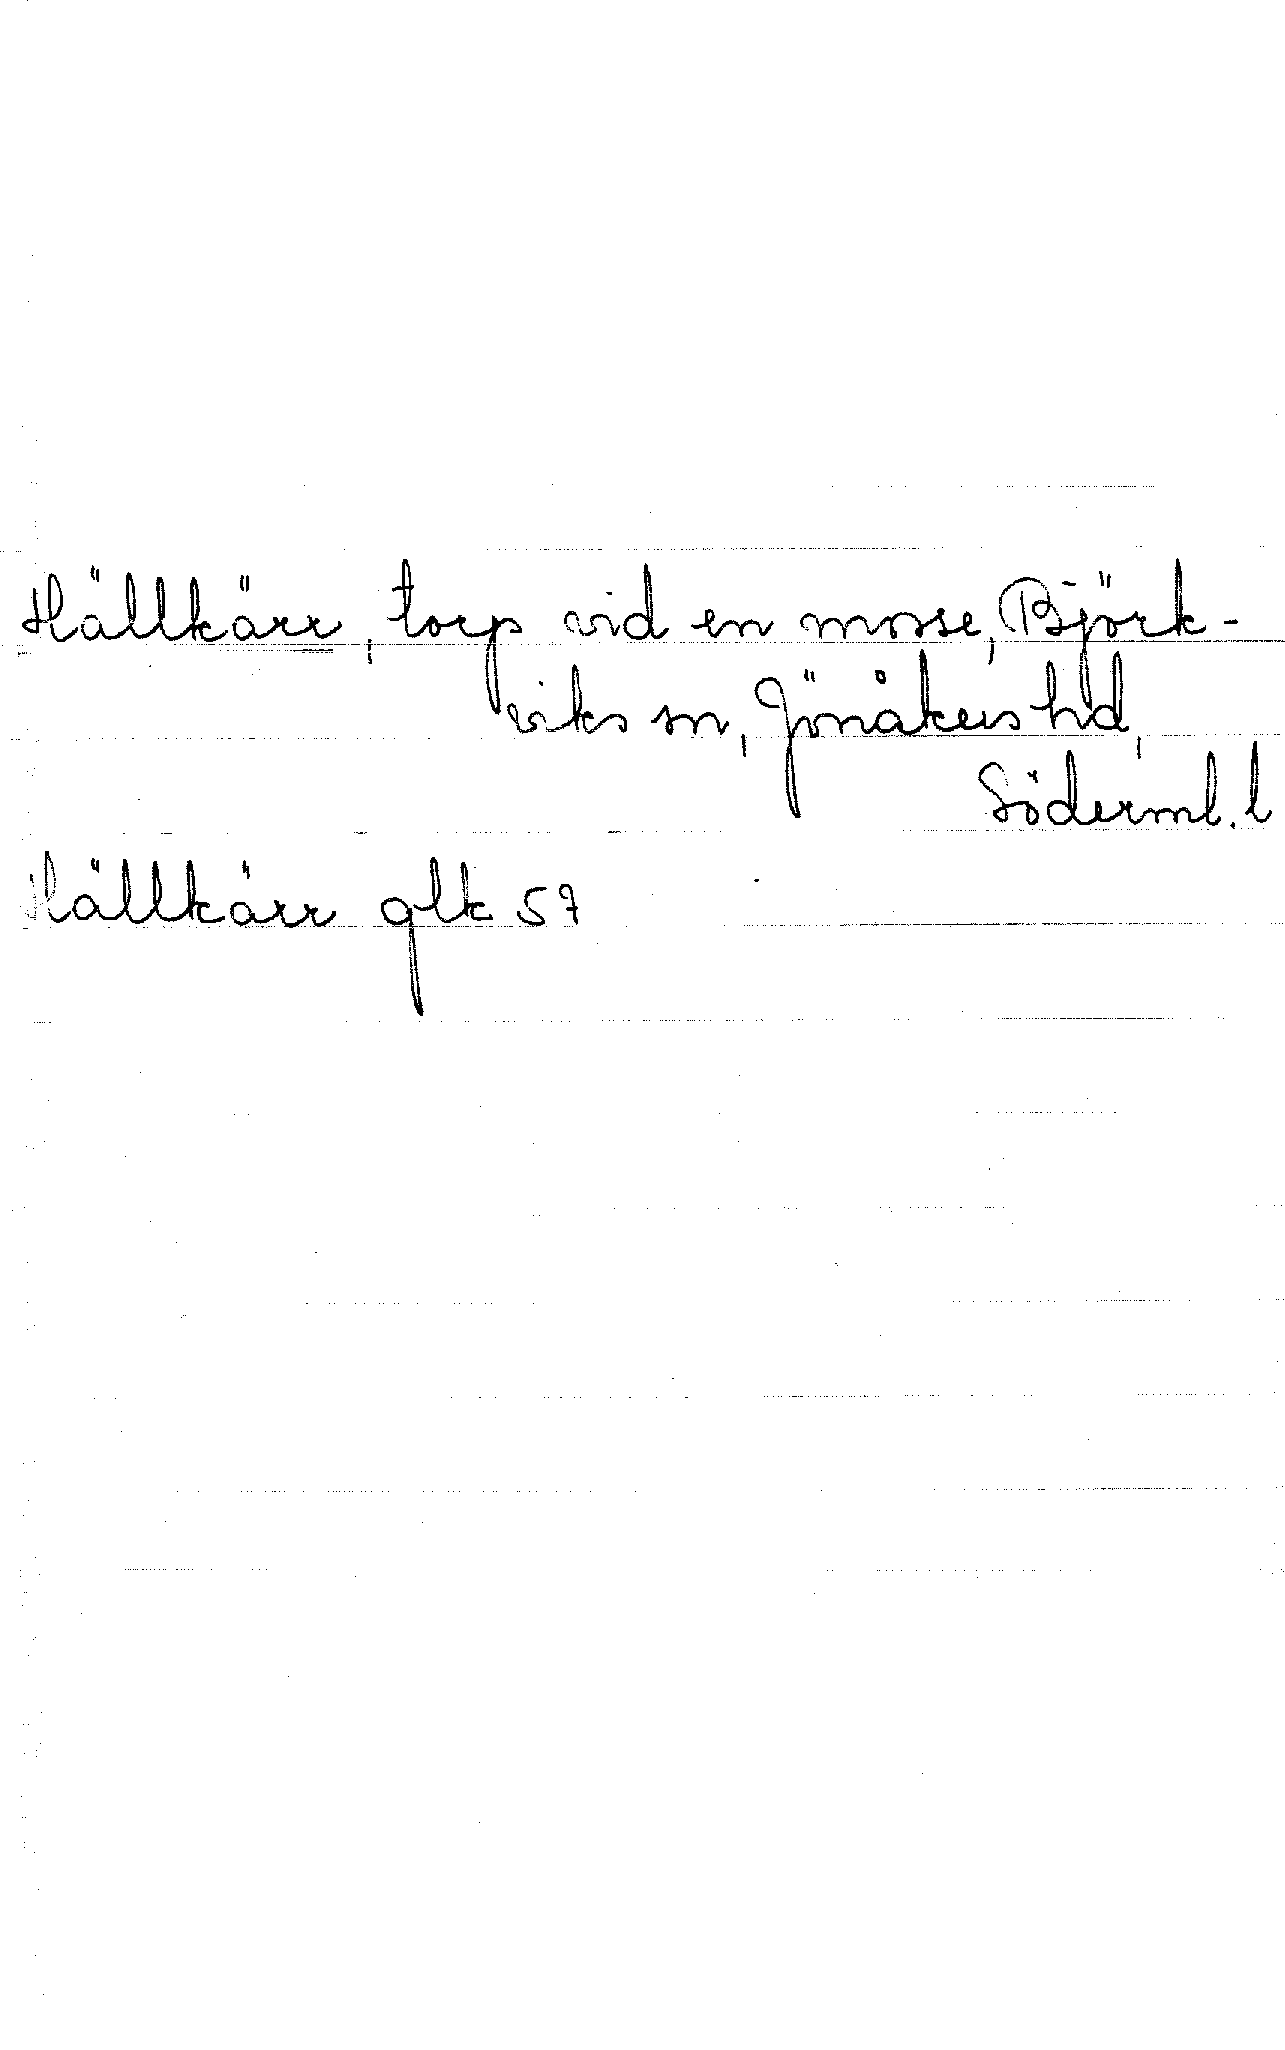 Hällkärr, torp vid en mosse, Björk-
viks sn, Jönåkers hd,
Söderml. l
Hällkärr glk 57